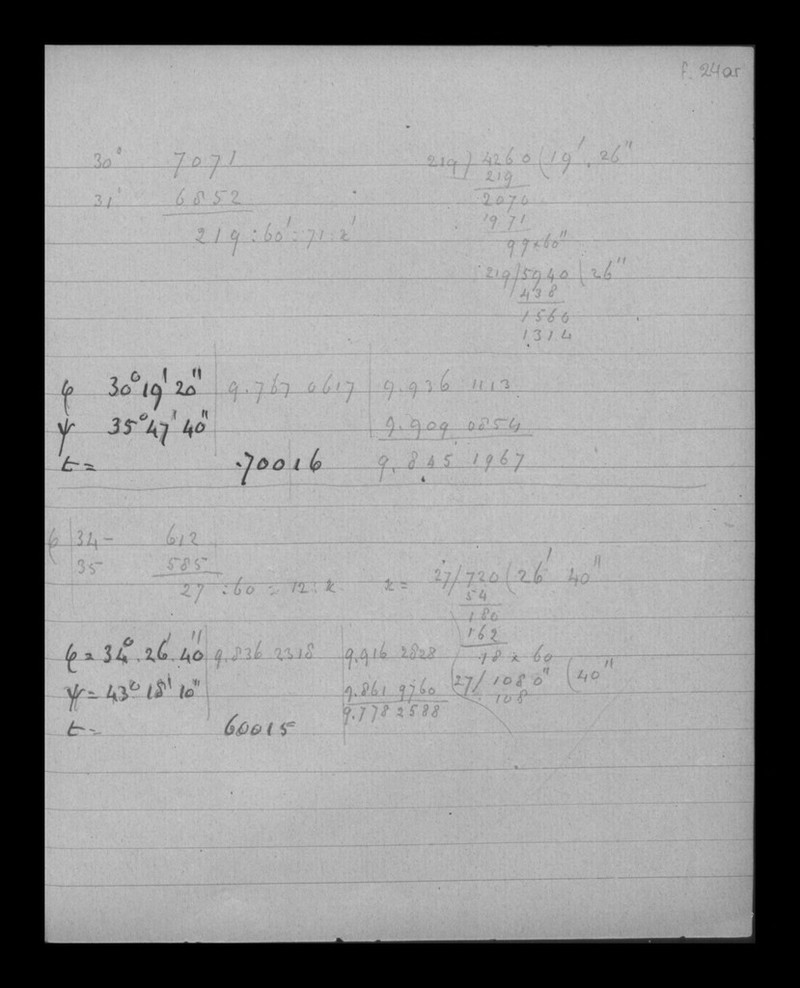 f. 24ar
30° 7071 219 ) 4260 ( 19' . 26"
219
31' 6852 2070
1971
219 : 60' : 71 : x' 99 × 60"
219/5940 ( 26"
438
1560
1314
φ 30° 19' 20" 9.767 0617 9.936 1113
ψ 35° 47' 40" 9.909 0854
t = .70016 9.845 1967
φ 34 – 612
35 585
27 : 60 = 12 : x x = 27/720 ( 26' 40"
54
180
162
φ = 34° . 26' . 40" 9.836 2318 9.916 2828 18 × 60
ψ = 43° 18' 10" 9.861 9760 27/1080" ( 40"
108
9.778 2588
t = 60015